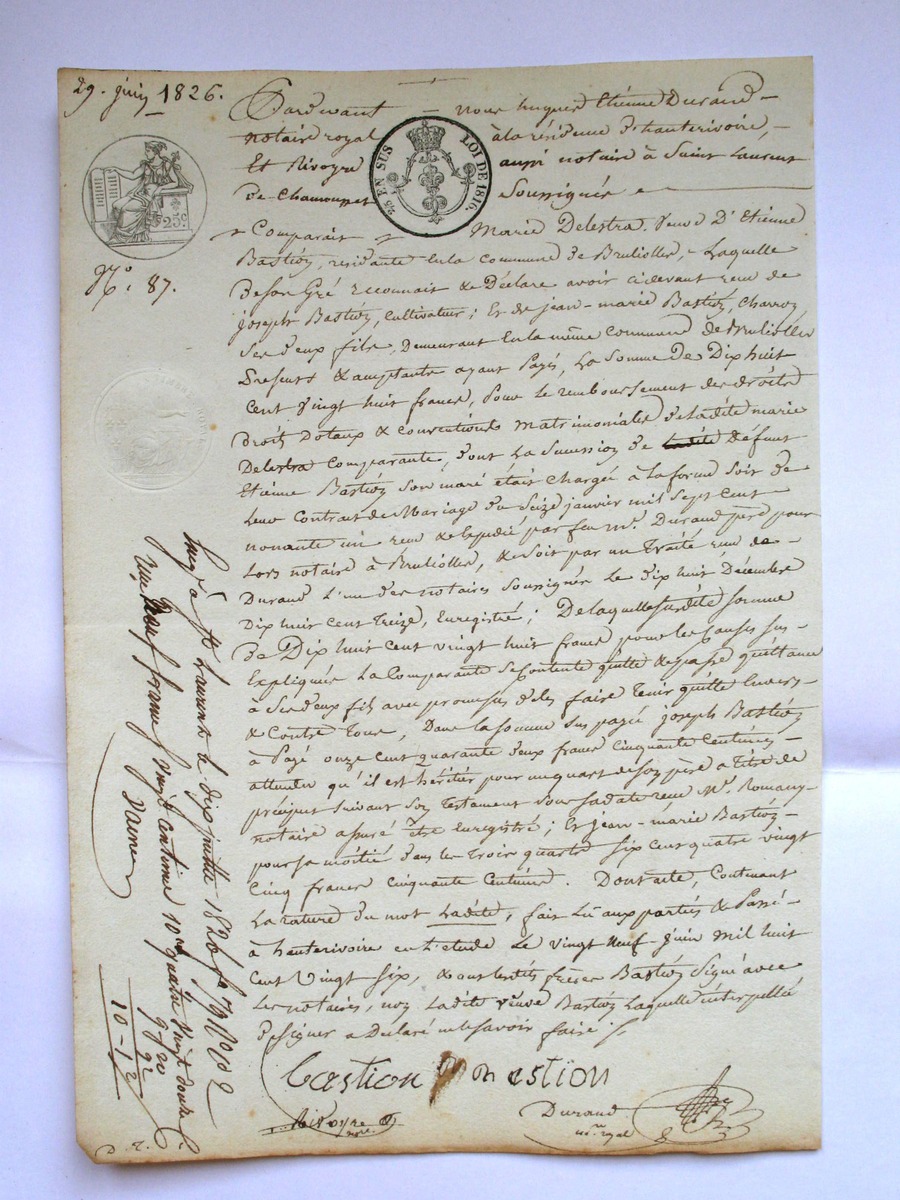 29. juin 1826.
Pardevant - nous hugues Etienne Durand -
notaire royal à la résidence d'hauterivoire, -
Et Rivoyre aussi notaire à Saint Laurent
de Chamousset Soussignés
25 EN SUS LOI DE 1816.
25c.
N.° 87.
Comparait Marie Delestra, veuve D'Etienne
Bastion, residante En la commune de Bruliolle, - Laquelle
de son Gré reconnait & Déclare avoir cidevant reçu de
joseph Bastion, Cultivateur; Et de jean-marie Bastion, Charron
Ses deux fils, Demeurant En la même Commune de Brulioller
Presents & acceptants ayant Payés, La Somme de Dix huit
Cent Vingt huit francs, Pour le remboursement des droits
Droits Dotaux & Conventions Matrimoniales de Ladite marie
Delestra Comparante, dont La Succession de Ladite Défunt
Etienne Bastion Son mari était Chargée à La forme Soit de
Leur Contrat de Mariage du Seize janvier mil Sept Cent
nonante un reçu & Expédié par feu Me. Durand père pour
Lors notaire à Brulioller, & Soit par un Traité reçu de -
Durand L'un des notaires Soussignés Le dix huit Décembre
Dix huit cent Treize, Enregistré; De laquelle Susdite Somme
de Dix huit Cent vingt huit francs pour les Causes Sus -
Expliquées La Comparante Se Contente quitte & passe quittance
à Ses deux fils avec promesse d'les faire Tenir quitte Envers
& Contre Tous, Dans la Somme Sus payée joseph Bastion
à Payé onze cent quarante deux francs Cinquante Centimes -
attendu qu'il est héritier pour un quart de son père à Titre de
préciput Suivant Son Testament Sous Sa date reçu Me. Romany
notaire assuré être Enregistré; Et jean-marie Bastion -
pour Sa moitié Dans les Trois quarts Six Cent quatre vingt
Cinq francs Cinquante Centimes. Dont acte, Contenant
La rature du mot Ladite, fait Lu aux parties & Passé
à hauterivoire en L'étude Le vingt Neuf juin Mil huit
Cent Vingt Six, & ont lesdits frères Bastion Signé avec
Les notaires, non Ladite veuve Bastion Laquelle interpellée
de Signer a Déclaré ne le Savoir faire ./.
Bastion Bastion
Rivoyre
notre.
Durand
nore. royal
Enrg. à St Laurent le dix juillet 1826
neuf francs vingt centimes 10me quatre vingt douze c.
9 f 20
92
10-12